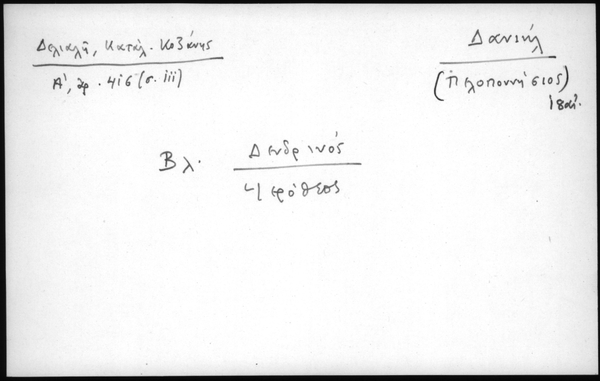 Δελιαλῆ, Κατάλ. Κοζάνης
Α', ἀρ. 416 (σ. iii)
Δανιὴλ
(Πελοποννήσιος)
18αἰ.
Βλ. Δενδρινός
Ἱερόθεος